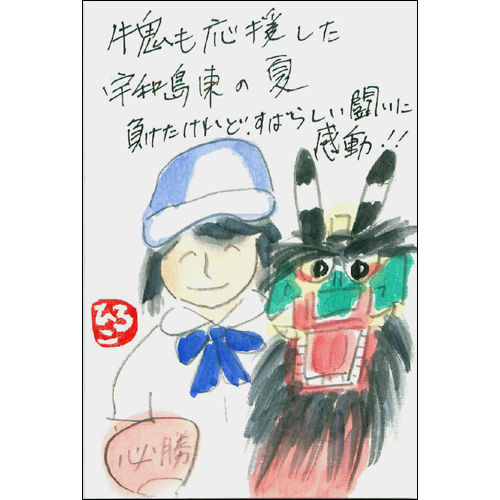 牛鬼も応援した
宇和島東の夏
負けたけれど、すばらしい闘いに
感動!!
ひろこ
必勝